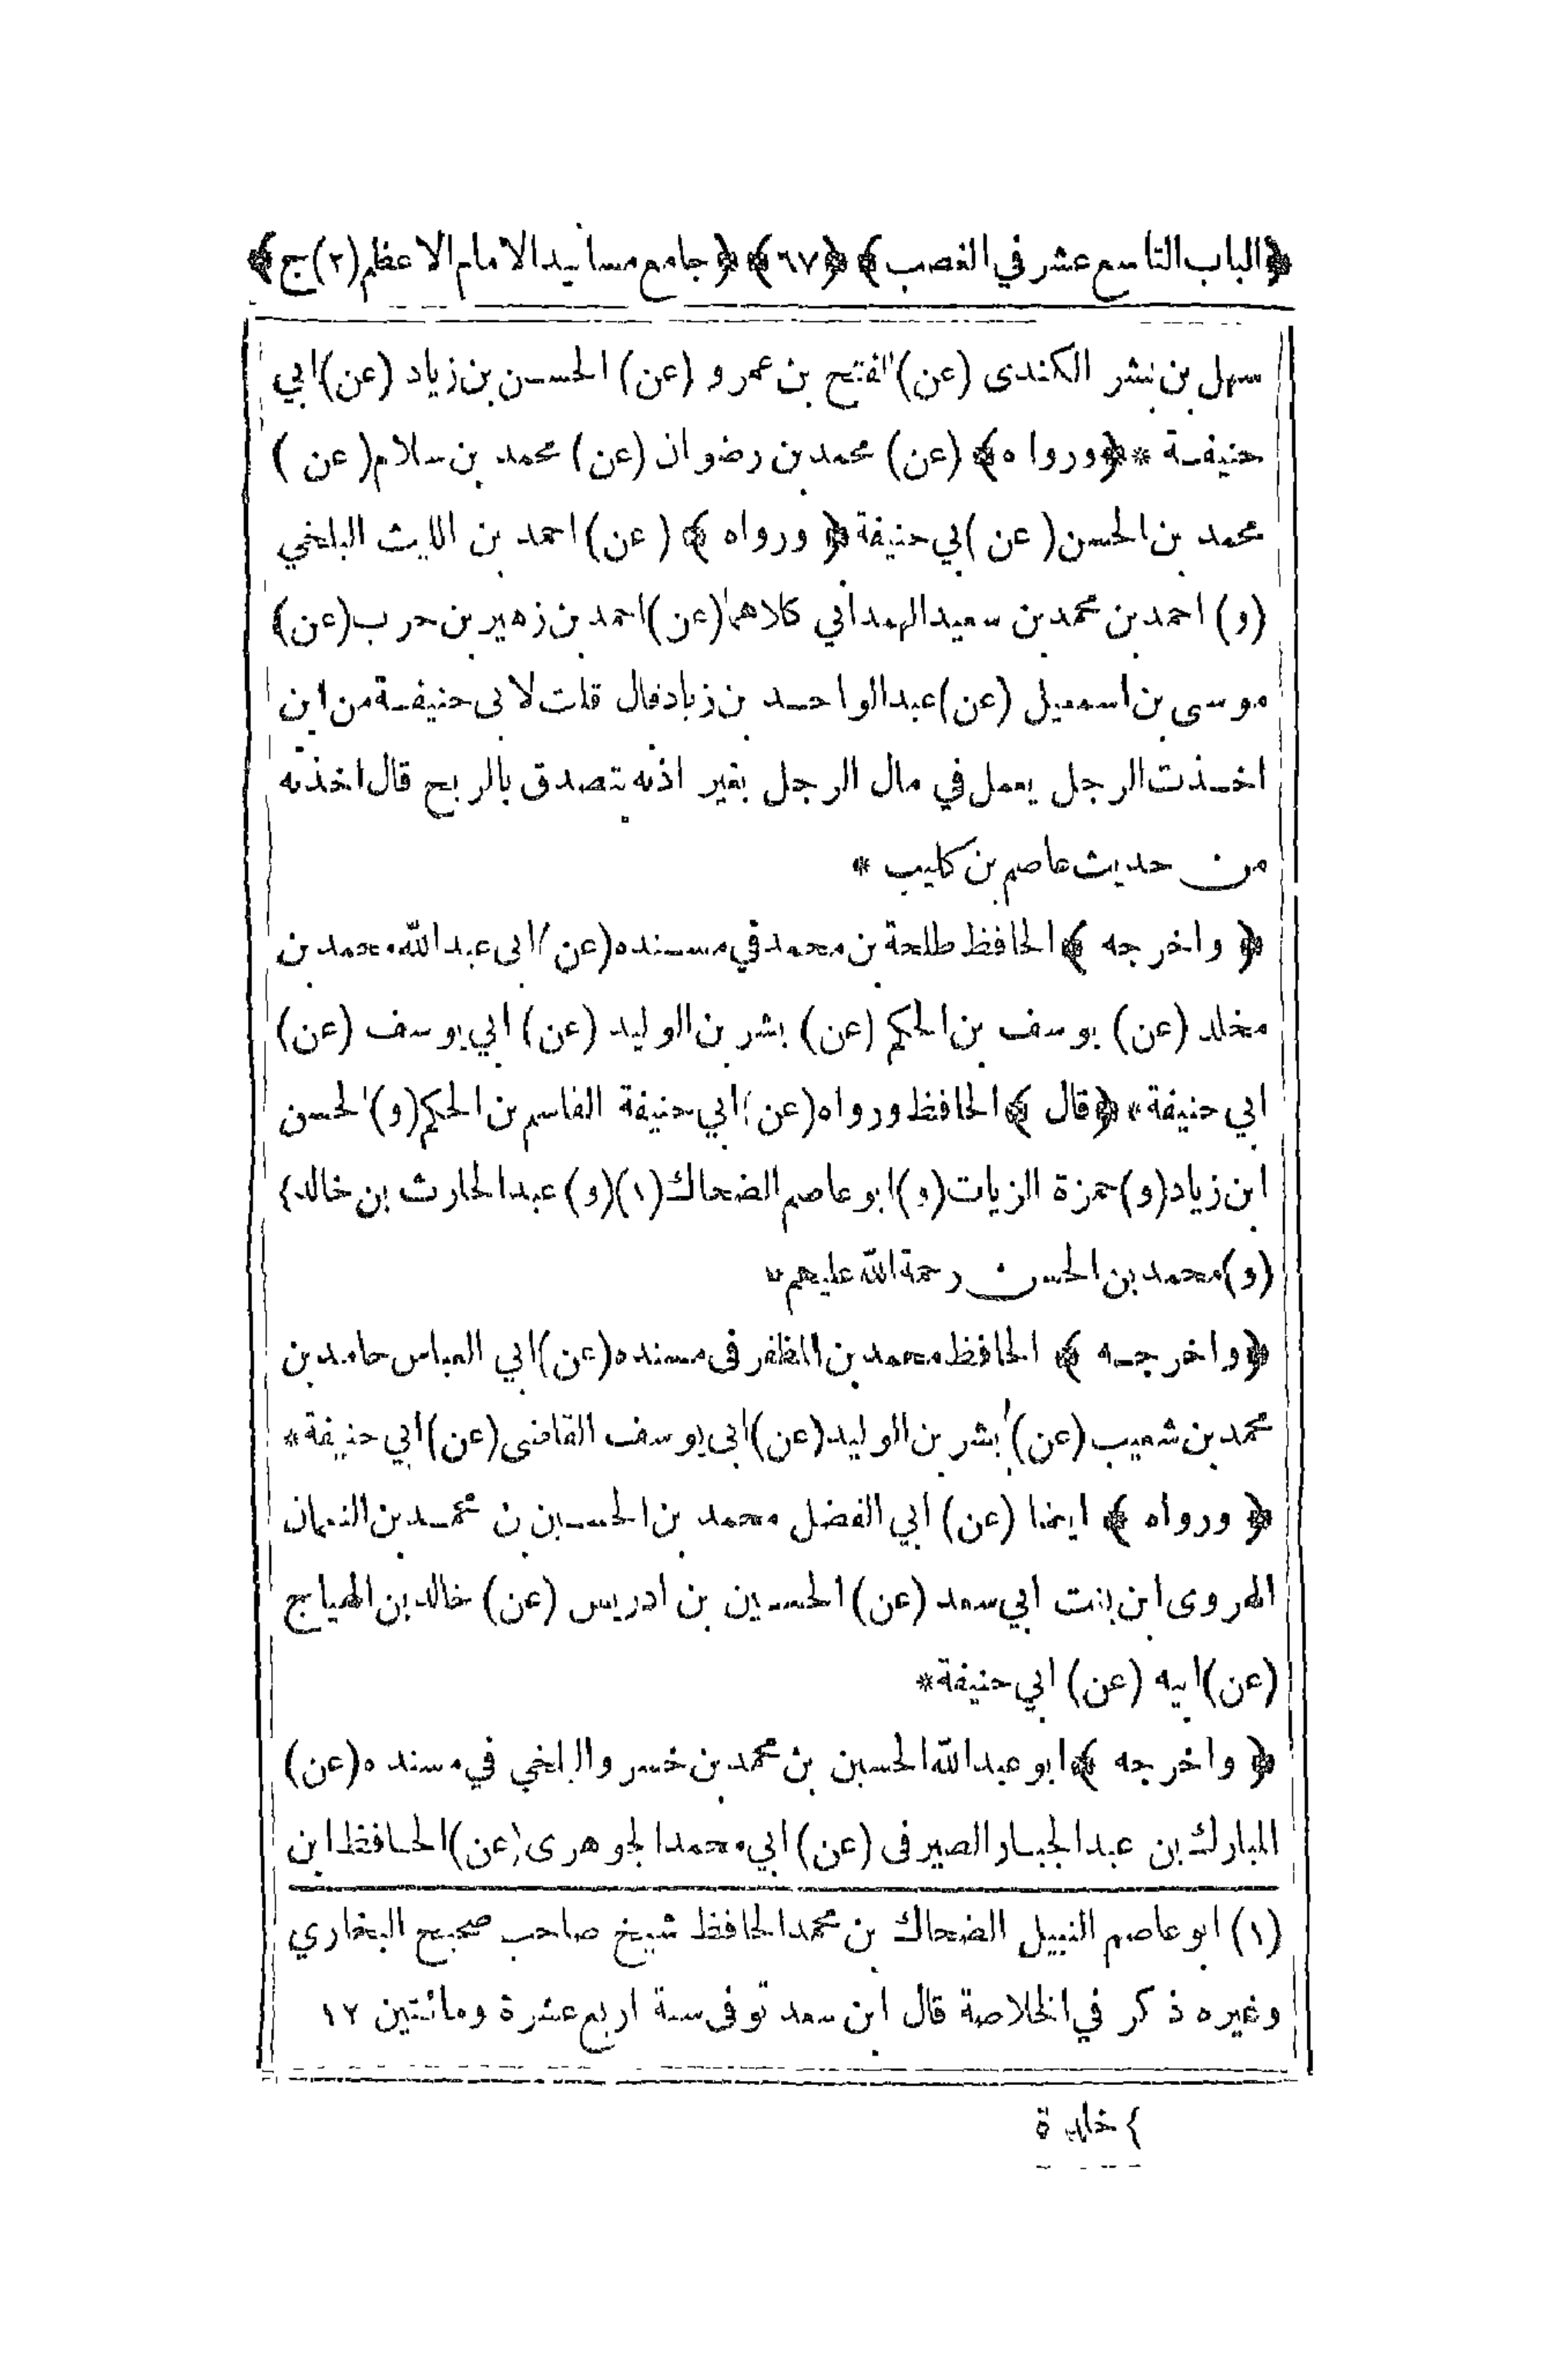 ﴿الباب التاسع عشر في الغصب﴾ ﴿٦٧﴾ ﴿جامع مسانيد الامام الاعظم (٢) ج﴾
سهل بن بشر الكندى (عن) الفتح بن عمرو (عن) الحسن بن زياد (عن) ابي
حنيفة * ﴿ورواه﴾ (عن) محمد بن رضوان (عن) محمد بن سلام (عن)
محمد بن الحسن (عن) ابي حنيفة ﴿ورواه﴾ (عن) احمد بن الليث البلخي
(و) احمد بن محمد بن سعيد الهمداني كلاهما (عن) احمد بن زهير بن حرب (عن)
موسى بن اسمعيل (عن) عبد الواحد بن زياد قال قلت لابى حنيفة من اين
اخذت الرجل يعمل في مال الرجل بغير اذنه يتصدق بالربح قال اخذته
من حديث عاصم بن كليب *
﴿واخرجه﴾ الحافظ طلحة بن محمد في مسنده (عن) ابى عبد الله محمد بن
مخلد (عن) يوسف بن الحكم (عن) بشر بن الوليد (عن) ابي يوسف (عن)
ابي حنيفة * ﴿قال﴾ الحافظ ورواه (عن) ابي حنيفة القاسم بن الحكم (و) الحسن
ابن زياد (و) حمزة الزيات (و) ابو عاصم الضحاك (١) (و) عبد الحارث بن خالد}
(و) محمد بن الحسن رحمة الله عليهم *
﴿واخرجه﴾ الحافظ محمد بن المظفر فى مسنده (عن) ابي العباس حامد بن
محمد بن شعيب (عن) بشر بن الوليد (عن) ابى يوسف القاضى (عن) ابي حنيفة *
﴿ورواه﴾ ايضا (عن) ابي الفضل محمد بن الحسين بن محمد بن النعمان
الهروى ابن بنت ابي سعد (عن) الحسين بن ادريس (عن) خالد بن الهياج
(عن) ابيه (عن) ابي حنيفة *
﴿واخرجه﴾ ابو عبد الله الحسين بن محمد بن خسرو البلخي في مسنده (عن)
المبارك بن عبد الجبار الصيرفى (عن) ابي محمد الجوهرى (عن) الحافظ ابن
(١) ابو عاصم النبيل الضحاك بن محمد الحافظ شيخ صاحب صحيح البخاري
وغيره ذكر في الخلاصة قال ابن سعد توفى سنة اربع عشرة ومائتين ١٢